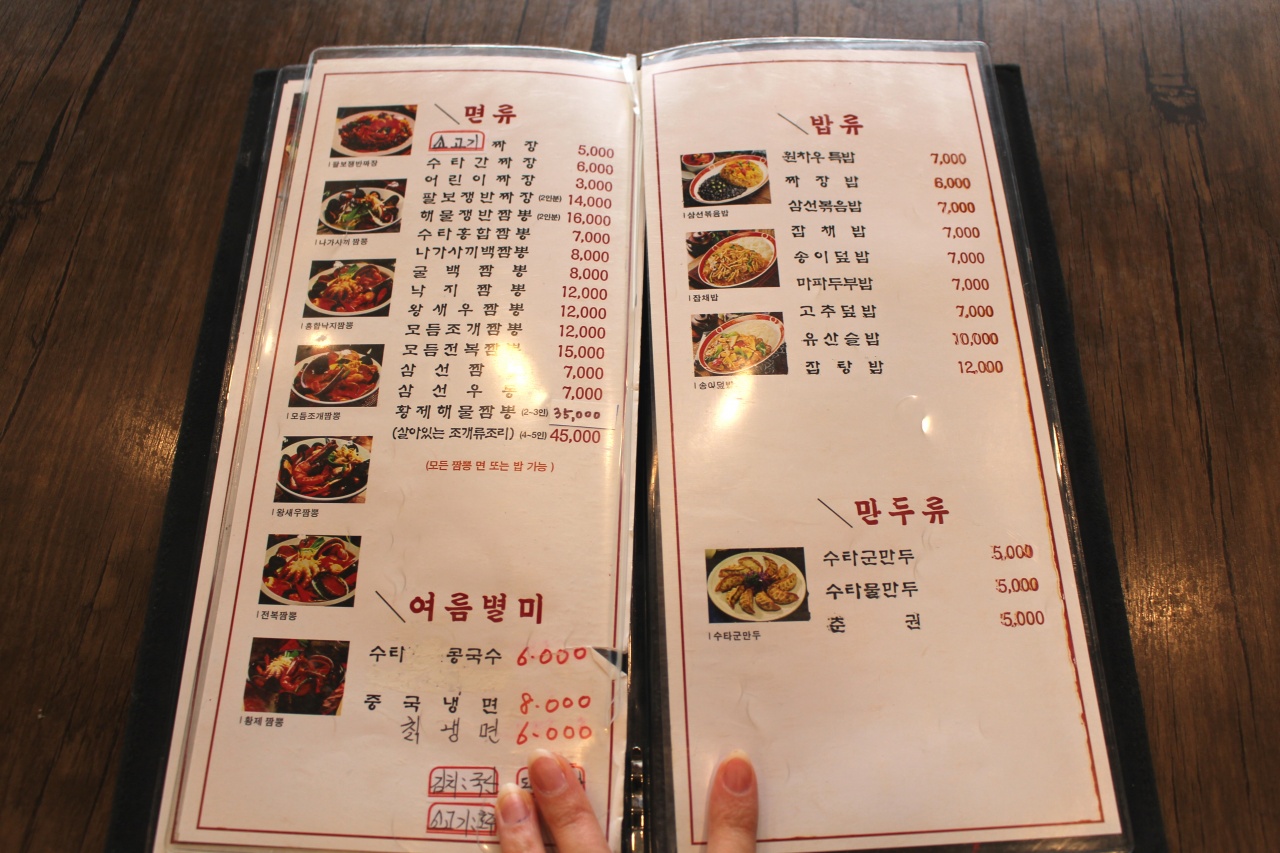 면류
소고기 짜장 5,000
수타간짜장 6,000
어린이짜장 3,000
팔보쟁반짜장 (2인분) 14,000
해물쟁반짬뽕 (2인분) 16,000
수타홍합짬뽕 7,000
나가사끼백짬뽕 8,000
굴백짬뽕 8,000
낙지짬뽕 12,000
왕새우짬뽕 12,000
모듬조개짬뽕 12,000
모듬전복짬 15,000
삼선짬 7,000
삼선우동 7,000
황제해물짬뽕 (2~3인) 35,000
(살아있는 조개류조리) (4~5인) 45,000
(모든 짬뽕 면 또는 밥 가능)
팔보쟁반짜장
나가사끼 짬뽕
홍합낙지짬뽕
모듬조개짬뽕
왕새우짬뽕
전복짬뽕
황제 짬뽕
여름별미
수타 콩국수 6.000
중국냉면 8.000
칡냉면 6.000
김치:국산
소고기:호주
밥류
원차우특밥 7,000
짜장밥 6,000
삼선볶음밥 7,000
잡채밥 7,000
송이덮밥 7,000
마파두부밥 7,000
고추덮밥 7,000
유산슬밥 10,000
잡탕밥 12,000
삼선볶음밥
잡채밥
송이덮밥
만두류
수타군만두 5,000
수타물만두 5,000
춘권 5,000
수타군만두